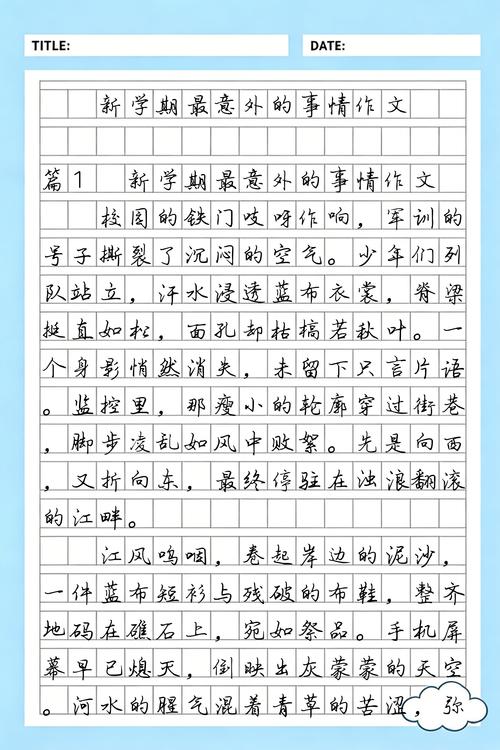 TITLE:
DATE:
新学期最意外的事情作文
篇1 新学期最意外的事情作文
校园的铁门吱呀作响，军训的
号子撕裂了沉闷的空气。少年们列
队站立，汗水浸透蓝布衣裳，脊梁
挺直如松，面孔却枯槁若秋叶。一
个身影悄然消失，未留下只言片语
。监控里，那瘦小的轮廓穿过街巷
，脚步凌乱如风中败絮。先是向西
，又折向东，最终停驻在浊浪翻滚
的江畔。
江风呜咽，卷起岸边的泥沙，
一件蓝布短衫与残破的布鞋，整齐
地码在礁石上，宛如祭品。手机屏
幕早已熄灭，倒映出灰蒙蒙的天空
。河水的腥气混着青草的苦涩，弥